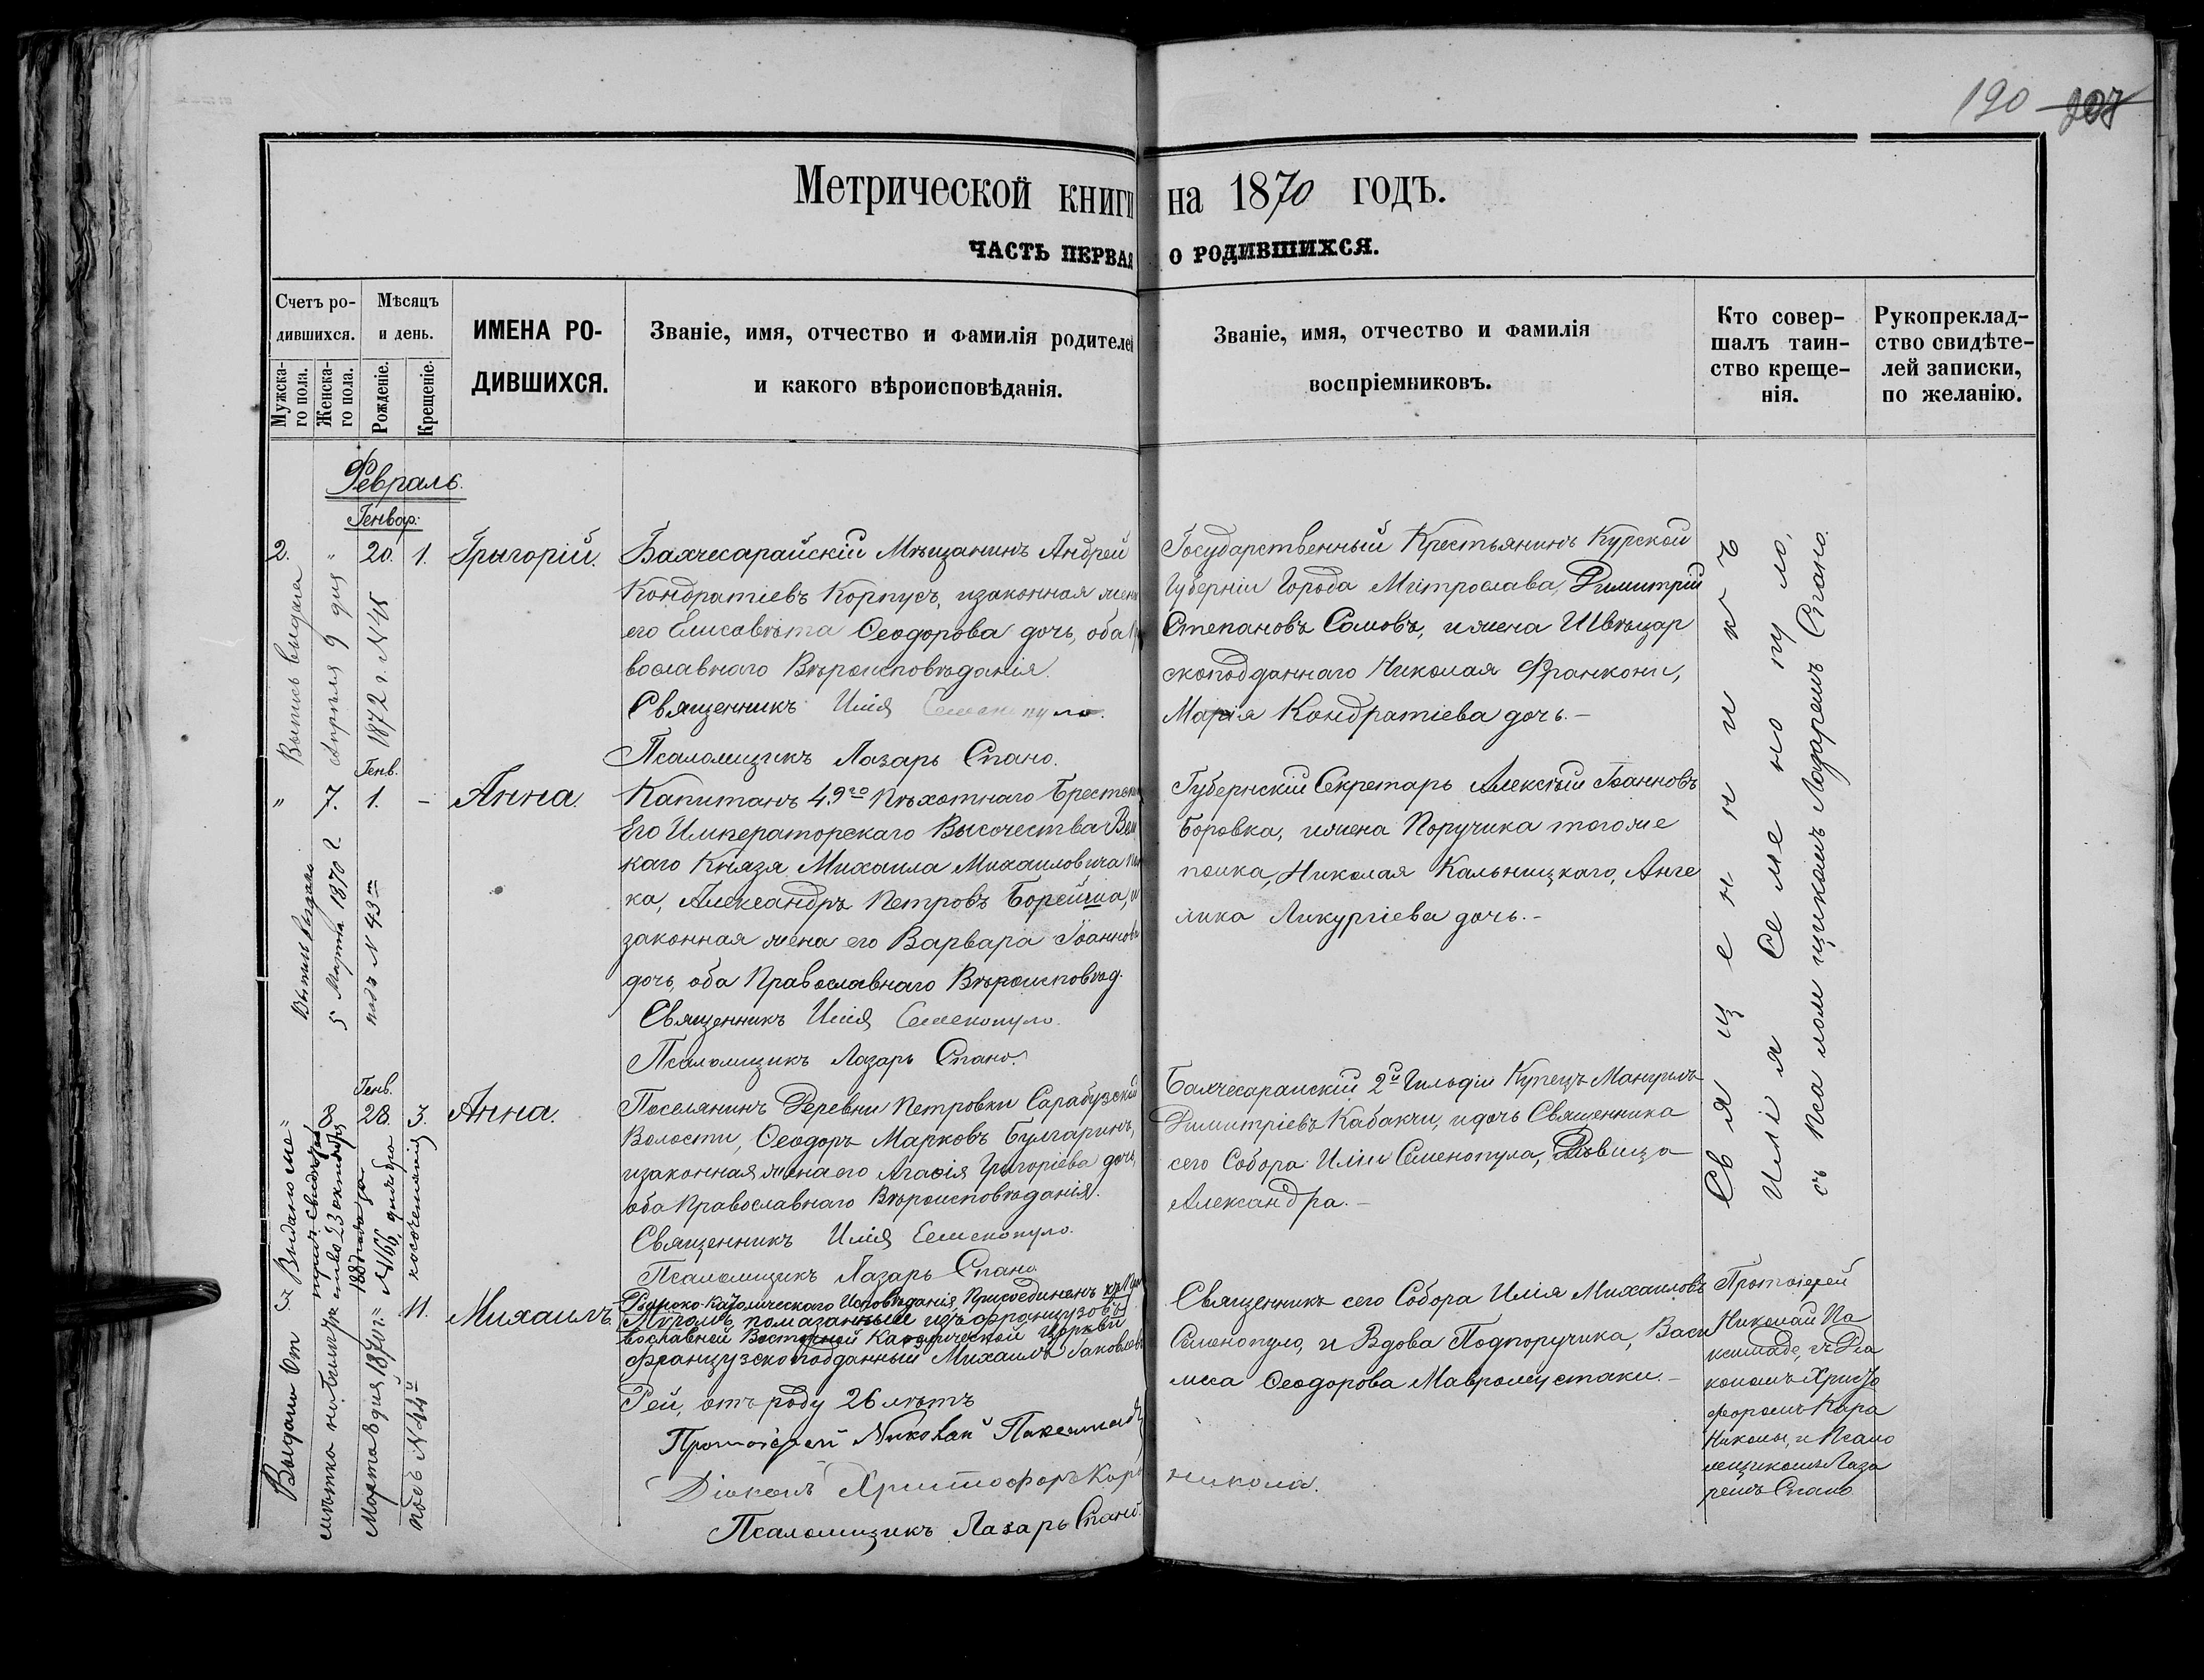 190 207
Метрической книги на 1870 годъ.
ЧАСТЬ ПЕРВАЯ О РОДИВШИХСЯ.
Счетъ ро-
дившихся.
Мужска-
го пола.
Женска-
го пола.
Мѣсяцъ
и день.
Рожденіе.
Крещеніе.
ИМЕНА РО-
ДИВШИХСЯ.
Званіе, имя, отчество и фамилія родителей
и какого вѣроисповѣданія.
Званіе, имя, отчество и фамилія
воспріемниковъ.
Кто совер-
шалъ таин-
ство креще-
нія.
Рукопреклад-
ство свидѣте-
лей записки,
по желанію.
Февраль.
Генвар.
2. " 20. 1. Грыгорій.
Бахчесарайскій Мѣщанинъ Андрей
Кондратіевъ Корпусъ, изаконная жена
его Елисавѣта Ѳеодорова дочь, оба
вославнаго Вѣроисповѣданія.
Священникъ Илія Семенопуло.
Псаломщикъ Лазарь Спано.
Государственный Крестьянинъ Курской
Губерніи Города Митрослава, Димитрій
Степановъ Сомовъ, ижена Швѣцар
скоподданнаго Николая Франкони,
Марія Кондратіева дочь.-
Выпись выдана
апрѣля 9 дня
1872 г. N 45
Генв.
" 7 1. - Анна.
Капитанъ 49го Пѣхотнаго Брестска
Его Императорскаго Высочества Вели
каго Князя Михаила Михаиловича
ка, Александръ Петровъ Борейша, и
законная жена его Варвара Іоаннова
дочь, оба Православнаго Вѣроисповѣд.
Священникъ Илія Семенопуло.
Псаломщикъ Лазарь Спано.
Губернскій Секретарь Алексѣй Іоанновъ
Боровка, ижена Поручика тогоже
полка, Николая Кальницкаго, Анге
лика Ликургіева дочь.-
Выпись выдана
5 Марта 1870 г
подъ N 43м
Генв.
" 8 28. 3. Анна.
Поселянинъ Деревни Петровки Сарабузской
Волости, Ѳеодоръ Марковъ Булгаринъ,
изаконная жена его Агафія Григоріева дочь,
оба Православнаго Вѣроисповѣданія.
Священникъ Илія Семенопуло.
Псаломщикъ Лазарь Спано
Бахчесарайскій 2й Гильдіи Купецъ Мануилъ
Димитріевъ Кабакчи, идочь Священника
сего Собора Иліи Семенопула, Дѣвица
Александра.-
Священникъ
Илія Семенопуло,
съ псаломщикомъ Лазаремъ Спано.
11. Михаилъ
Римско-Католическаго Исповѣданія, Присоединенъ къ Пра
Мѵромъ помазанный изъ французовъ
вославной Восточной Каѳолической Церкви
французскоподданный Михаилъ Іаковлевъ
Рей, отъ роду 26 лѣтъ
Протоіерей Николай Пакештаде
Діаконъ Христофоръ Кара никола.
Псаломщикъ Лазарь Спано.
Священникъ сего Собора Илія Михаиловъ
Семенопуло, и Вдова Подпоручика, Васи
лиса Ѳеодорова Мавромустаки.-
Протоіерей
Николай Па
кештаде, съ Діа
кономъ Христо
форомъ Кара
Николы, и Псало
мщикомъ Лаза
ремъ Спано
Марта 8 дня 1870 г.
подъ N 44й